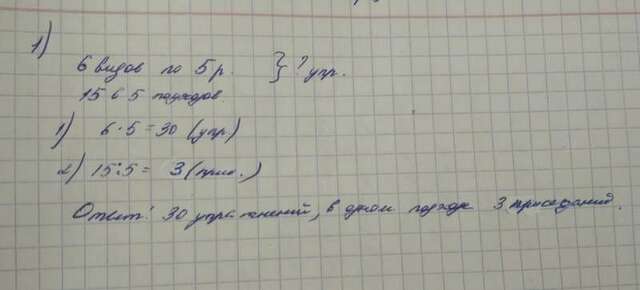 1)
6 видов по 5 р. } ? упр.
15 в 5 подходов.
1) 6·5=30 (упр)
2) 15:5= 3 (прис.)
Ответ: 30 упражнений, в одном подходе 3 приседаний.